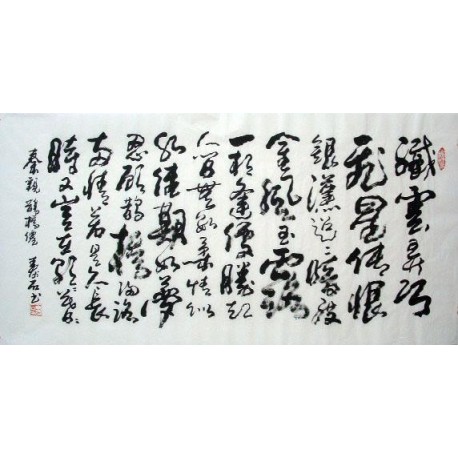 纖雲弄巧
飛星傳恨
銀漢迢々暗度
金風玉露
一相逢便勝却
人間無數柔情似
水佳期如夢
忍顧鵲橋歸路
兩情若是久長
時又豈在朝々暮々
秦觀 鵲橋僊 石书